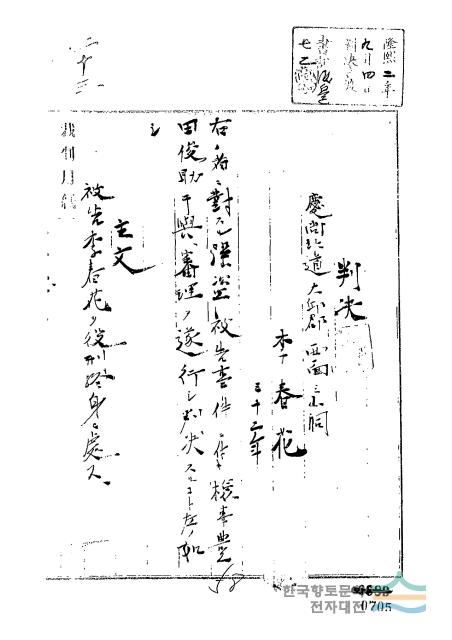 隆熙二年
九月四日
判決言渡
判决
慶尚北道大邱郡西面三小洞
李春花
三十二年
右ノ者ニ對スル强盜被告事件ニ付キ檢事豊
田俊助干與審理ヲ遂行シ判决スルコト左ノ如
シ
主文
被告李春花ヲ役刑終身ニ處ス
二十三
58
한국향토문
전자대전
0705